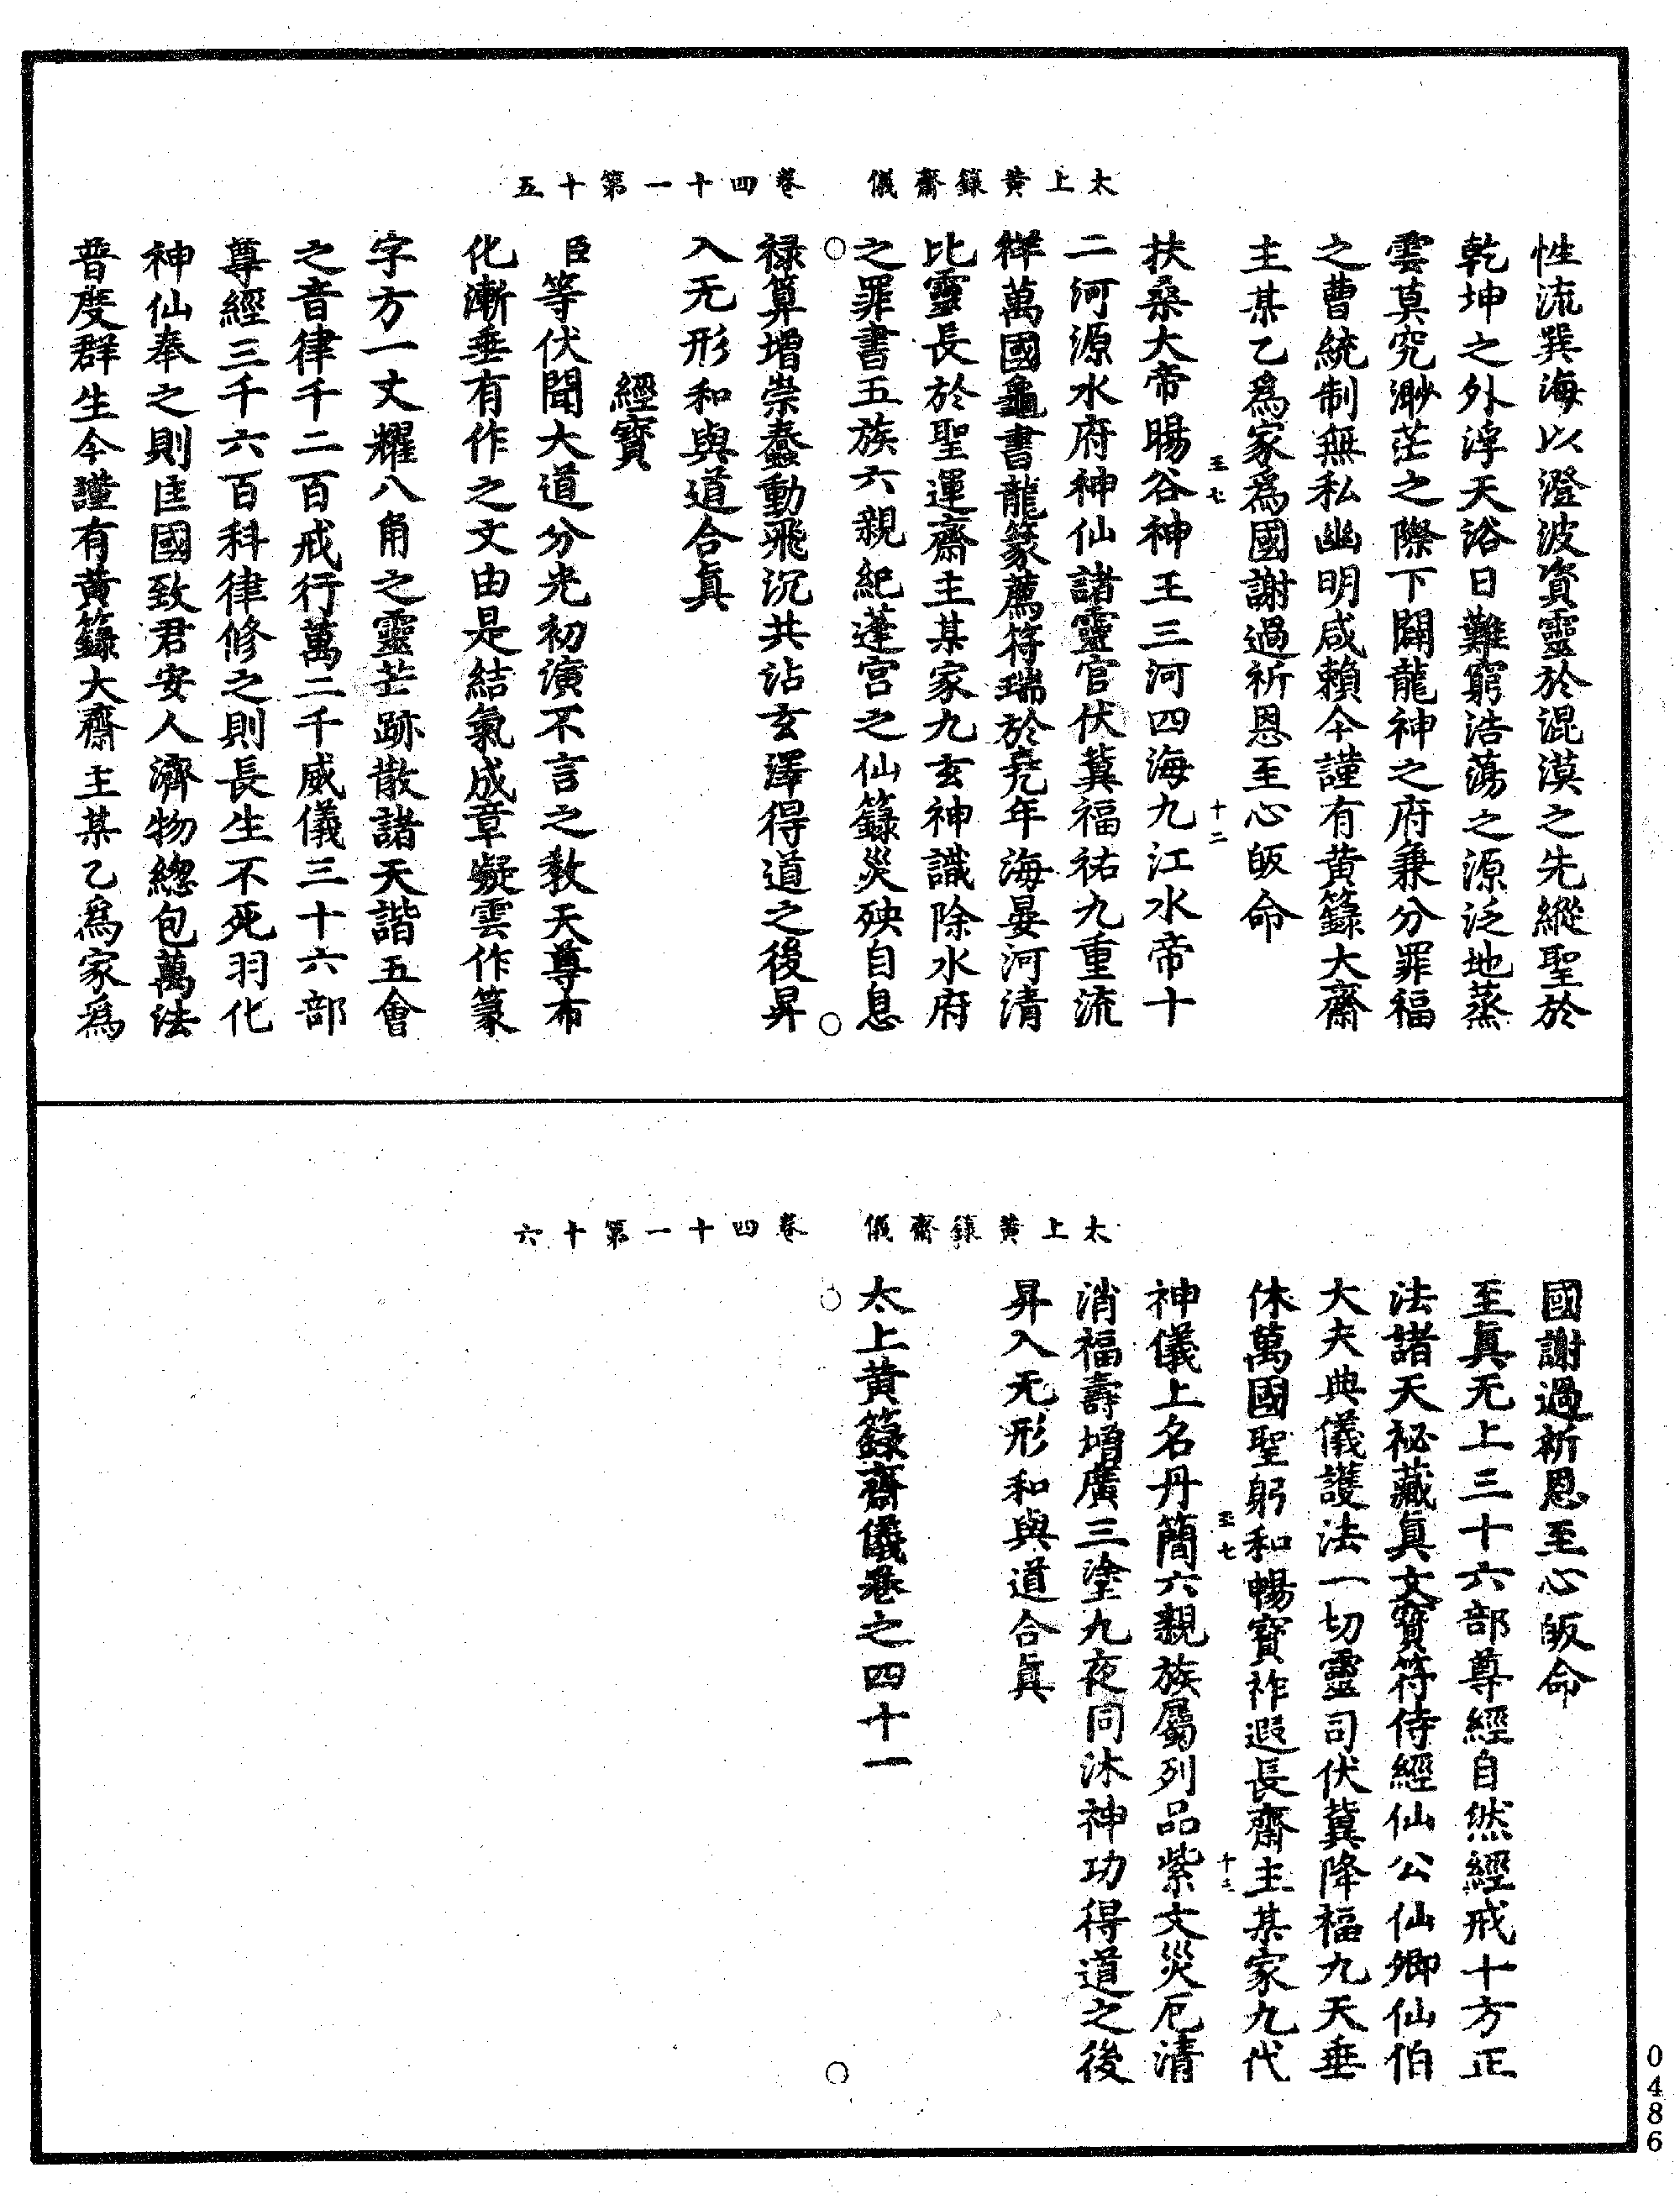 太上黃籙齋儀　卷四十一第十五
性流巽海以澄波資靈於混漠之先縱聖於
乾坤之外浮天浴日難窮浩蕩之源泛地蒸
雲莫究渺茫之際下闢龍神之府兼分罪福
之曹統制無私幽明咸賴今謹有黃籙大齋
主某乙爲家爲國謝過祈恩至心皈命
至七　十二
扶桑大帝暘谷神王三河四海九江水帝十
二河源水府神仙諸靈官伏冀福祐九重流
祥萬國龜書龍篆薦符瑞於堯年海晏河清
比靈長於聖運齋主某家九玄神識除水府
之罪書五族六親紀蓬宫之仙籙災殃自息
禄算增崇蠢動飛沉共沾玄澤得道之後昇
入无形和與道合真
經寶
臣等伏聞大道分光初演不言之教天尊布
化漸垂有作之文由是結氣成章凝雲作篆
字方一丈耀八角之靈芒跡散諸天諧五會
之音律千二百戒行萬二千威儀三十六部
尊經三千六百科律修之則長生不死羽化
神仙奉之則匡國致君安人濟物總包萬法
普度群生今謹有黃籙大齋主某乙爲家爲
太上黃籙齋儀　卷四十一第十六
國謝過祈恩至心皈命
至真无上三十六部尊經自然經戒十方正
法諸天祕藏真文寶符侍經仙公仙卿仙伯
大夫典儀護法一切靈司伏冀降福九天垂
休萬國聖躬和暢寶祚遐長齋主某家九代
至七　十三
神儀上名丹簡六親族屬列品紫文災厄清
消福壽增廣三塗九夜同沐神功得道之後
昇入无形和與道合真
太上黃籙齋儀卷之四十一
0486